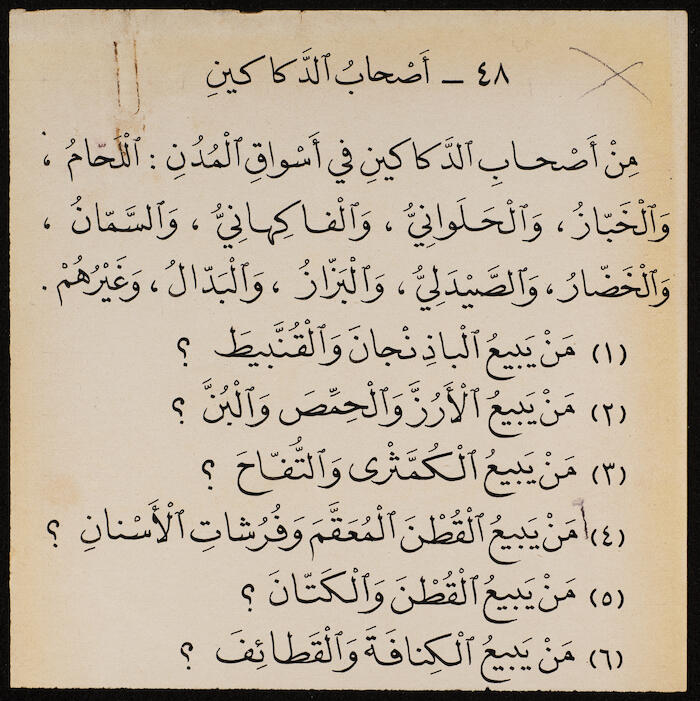 ٤٨ ـ أَصْحابُ ٱلدَّكاكينِ
مِنْ أَصْحابِ ٱلدَّكاكينِ في أَسْواقِ ٱلْمُدُنِ : ٱللَّحّامُ ،
وَٱلْخَبّازُ ، وَٱلْحَلَوانِيُّ ، وَٱلْفاكِهانِيُّ ، وَٱلسَّمّانُ ،
وَٱلْخَضّارُ ، وَٱلصَّيْدَلِيُّ ، وَٱلْبَزّازُ ، وَٱلْبَدّالُ ، وَغَيْرُهُمْ .
(١) مَنْ يَبيعُ ٱلْباذِنْجانَ وَٱلْقُنَّبيطَ ؟
(٢) مَنْ يَبيعُ ٱلْأَرُزَّ وَٱلْحِمِّصَ وَٱلْبُنَّ ؟
(٣) مَنْ يَبيعُ ٱلْكُمَّثْرى وَٱلتُّفّاحَ ؟
(٤) مَنْ يَبيعُ ٱلْقُطْنَ ٱلْمُعَقَّمَ وَفُرُشاتِ ٱلْأَسْنانِ ؟
(٥) مَنْ يَبيعُ ٱلْقُطْنَ وَٱلْكَتّانَ ؟
(٦) مَنْ يَبيعُ ٱلْكِنافَةَ وَٱلْقَطائِفَ ؟